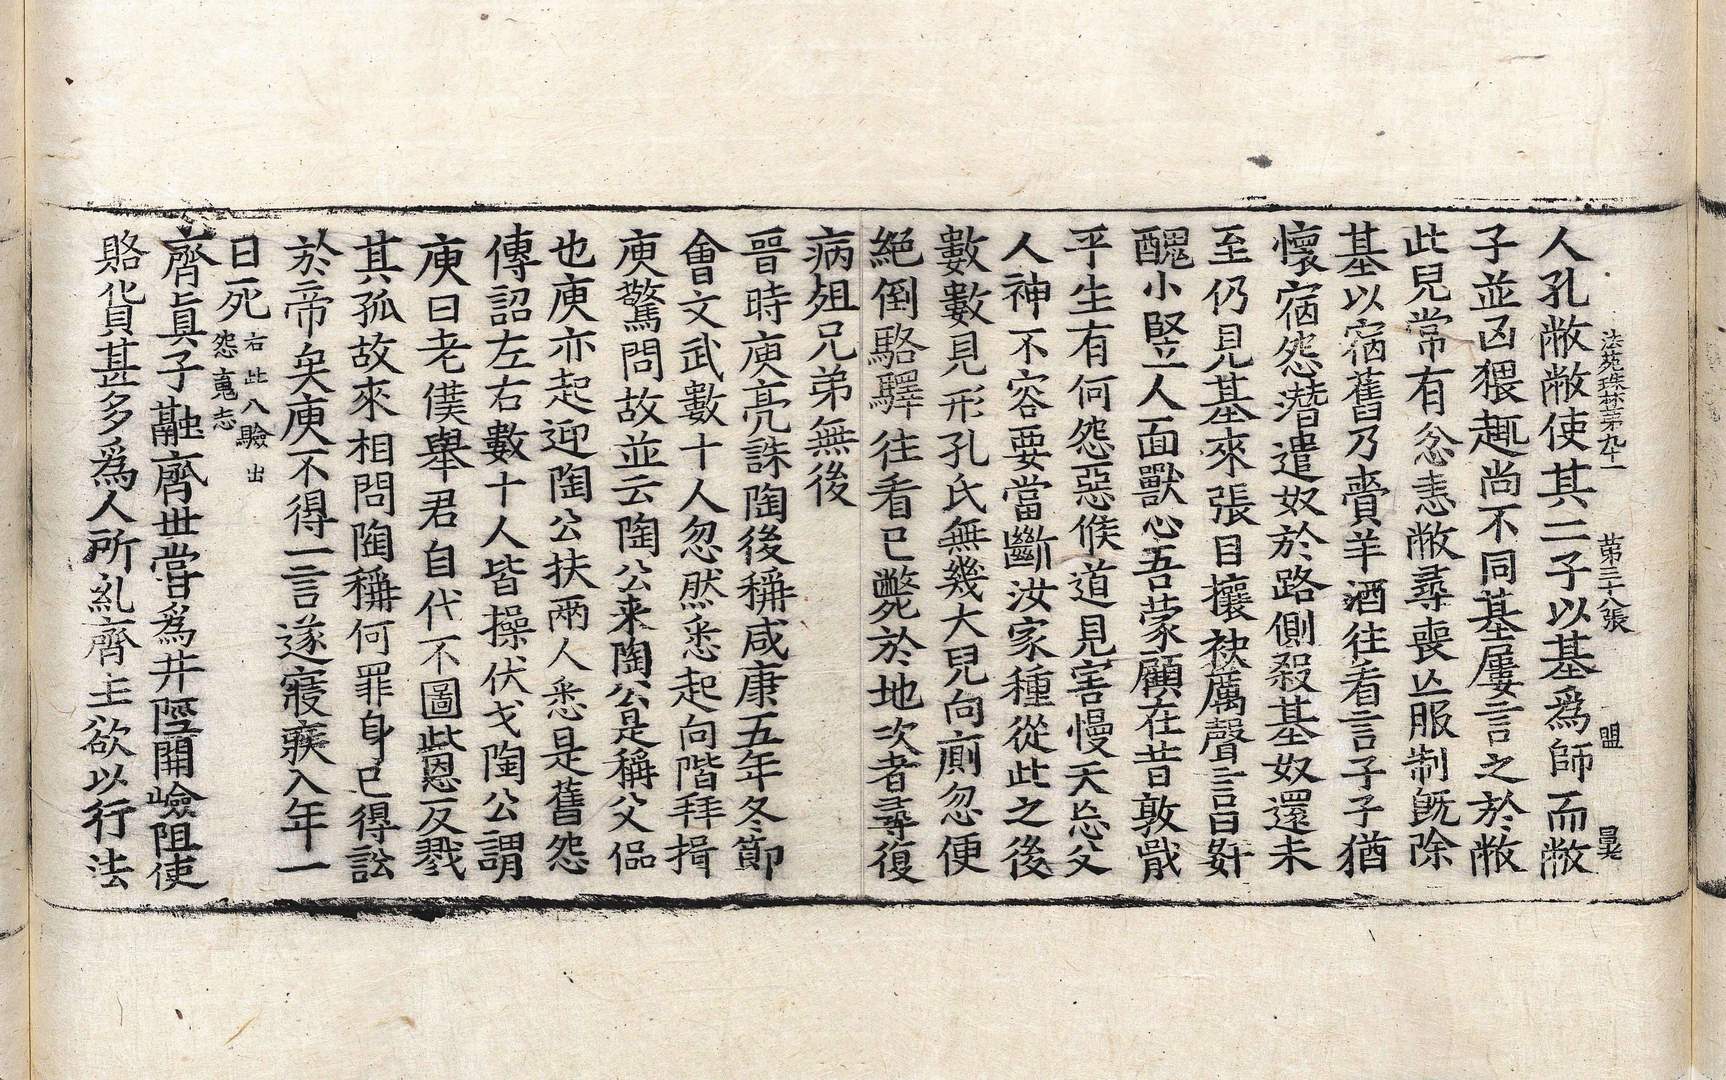 法苑珠林第九十一　第三十八張　盟　昊
人孔敝敝使其二子以基爲師而敝
子並凶猥趣尚不同基屢言之於敝
此兒常有忿恚敝尋喪亡服制旣除
基以宿舊乃賫羊酒往看言子子猶
懷宿怨潛遣奴於路側殺基奴還未
至仍見基來張目攘袂厲聲言曰姧
醜小竪人面獸心吾蒙顧在昔敦戢
平生有何怨惡候道見害慢天忘父
人神不容要當斷汝家種從此之後
數數見形孔氏無幾大兒向廁忽便
絕倒駱驛往看已斃於地次者尋復
病殂兄弟無後
晉時庾亮誅陶後稱咸康五年冬節
會文武數十人忽然悉起向階拜揖
庾驚問故並云陶公来陶公是稱父侃
也庾亦起迎陶公扶兩人悉是舊怨
傳詔左右數十人皆操伏戈陶公謂
庾曰老僕舉君自代不圖此恩反戮
其孤故來相問陶稱何罪身已得訟
於帝矣庾不得一言遂寢疾八年一
日死
右此八驗出
怨䰟志
齊眞子融齊世甞爲井陘開嶮阻使
賂貨甚多爲人所糺齊主欲以行法